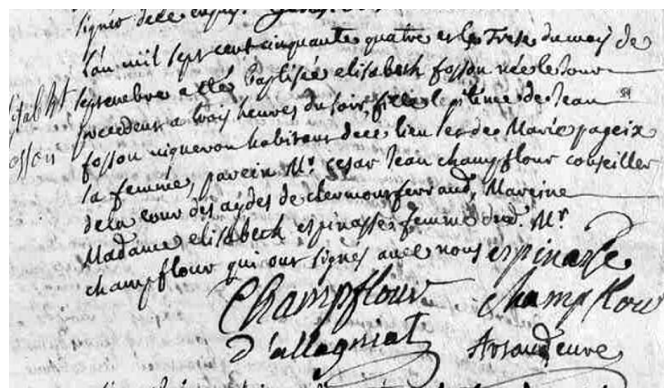 signé de ce enquis
L'an mil sept cent cinquante quatre et le Trese du mois de
septembre a été Baptisée elisabeth fosson née le jour
precedent a trois heures du soir, fille legitime de Jean
fosson vigneron habitant de ce lieu et de Marie pageix
sa femme, parein Mr. cesar Jean champflour conseiller
de la cour des aydes de clermontferrand, Mareine
Madame elisabeth espinasse femme dud. Mr.
champflour qui ont signés avec nous espinasse
Champflour champflour
d'allagnat cure